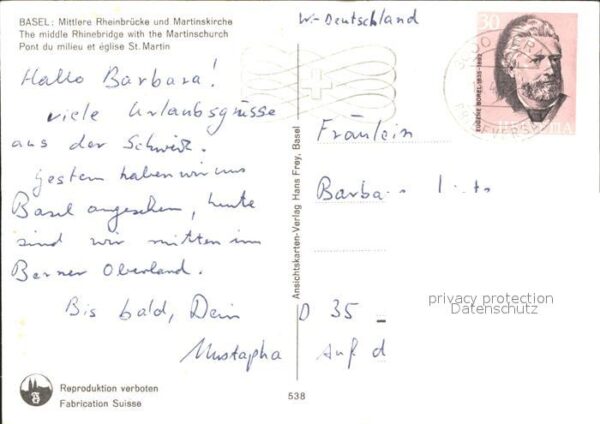 BASEL: Mittlere Rheinbrücke und Martinskirche
The middle Rhinebridge with the Martinschurch
Pont du milieu et église St. Martin
Hallo Barbara!
viele Urlaubsgrüsse
aus der Schweiz.
Gestern haben wir uns
Basel angesehen, heute
sind wir mitten im
Berner Oberland.
Bis bald, Dein
Mustapha
Reproduktion verboten
Fabrication Suisse
Ansichtskarten-Verlag Hans Frey, Basel
538
W.-Deutschland
30
EUGÈNE BOREL 1835-1892
HELVETIA
Fräulein
Barba
D 35
Auf d
privacy protection
Datenschutz